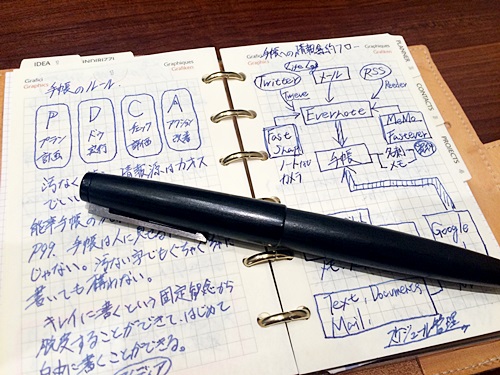 IDEA
Grafici
Graphics
Graphiques
Grafikens
手帳のルール
P
プラン
計画
D
ドゥ
実行
C
チェック
評価
A
アクション
改善
情報源はカオス
でいい
能率手帳の
P99. 手帳は人に見せる
じゃない。汚ない字でもぐちゃぐちゃ
書いても構わない。
キレイに書くという固定観念から
脱皮することができて、はじめて
自由に書くことができる。
Grafici
Graphics
Graphiques
Grafikens
PLANNER
CONTACTS
PROJECTS
手帳への情報集約フロー
Twitter
メール
RSS
Reader
Evernote
Fast
Snap
MoMo
Fastever
ノート
カメラ
手帳
名刺
メモ
Google
Text: Documents
Mail:
スケジュール管理